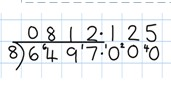 0812.125
8)6⁶4 9¹7.¹0²0⁴0